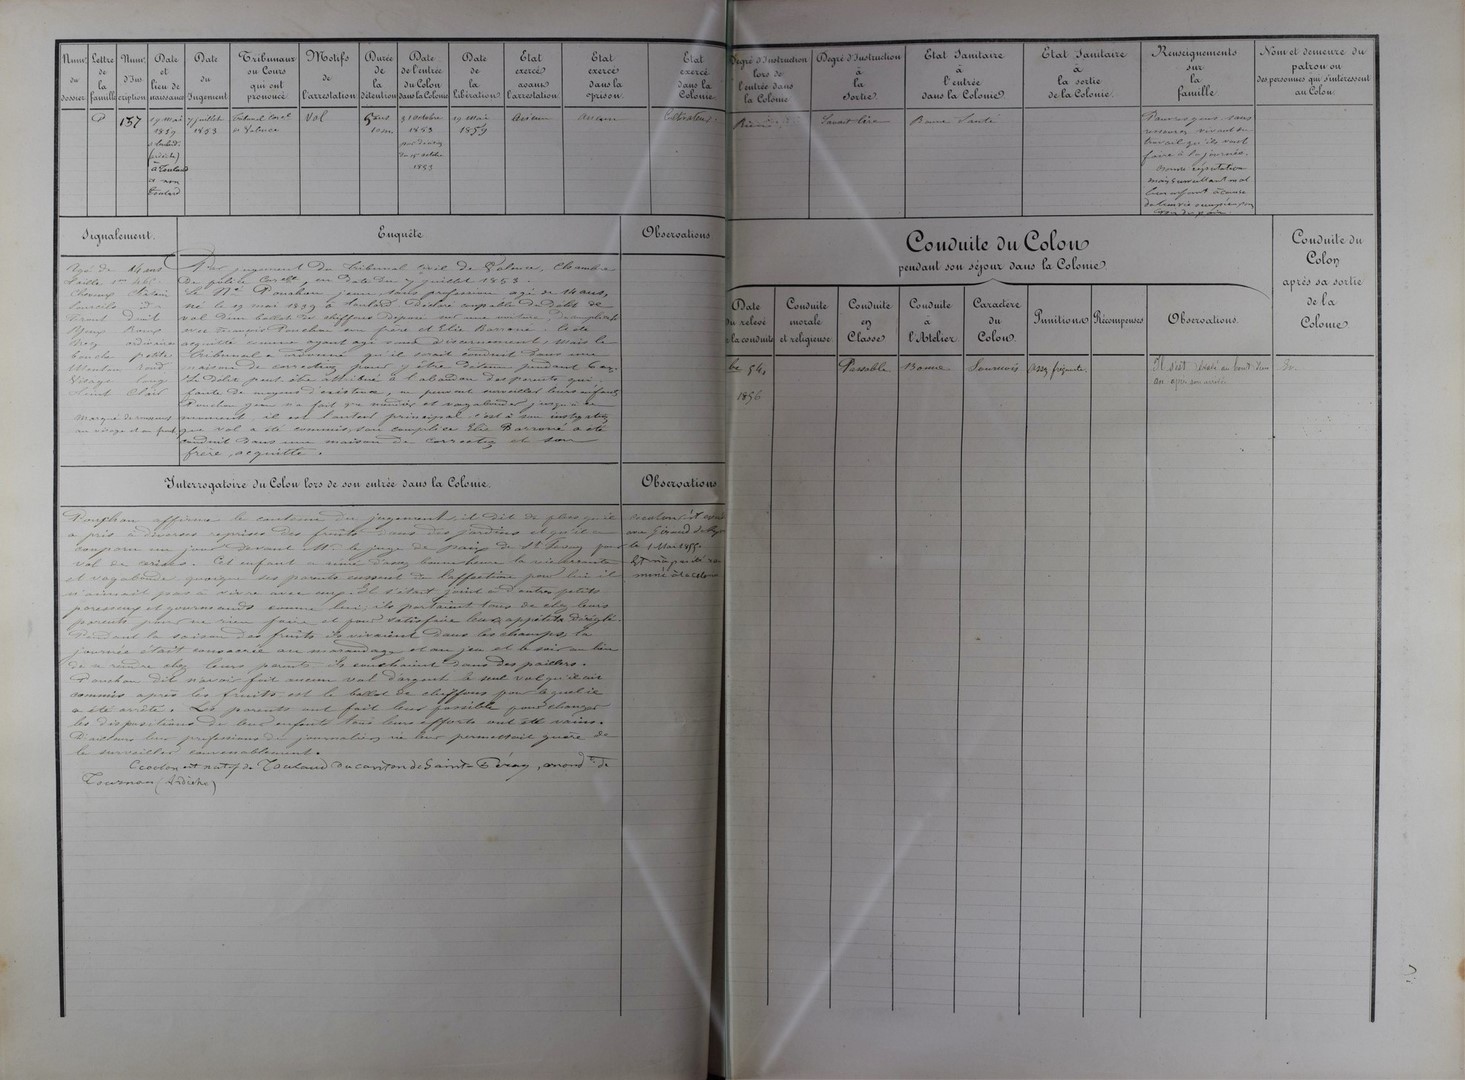 Num. du dossier
Lettre de la famille
Num. d'Inscription
Date et lieu de naissance
Date du Jugement
Tribunaux ou Cours qui ont prononcé
Motifs de l'arrestation
Durée de la détention
Date de l'entrée du Colon dans la Colonie
Date de la Libération
Etat exercé avant l'arrestation
Etat exercé dans la prison
Etat exercé dans la Colonie
Degré d'Instruction lors de l'entrée dans la Colonie
Degré d'Instruction à la Sortie
Etat Sanitaire à l'entrée dans la Colonie
Etat Sanitaire à la sortie de la Colonie
Renseignements sur la famille
Nom et demeure du patron ou des personnes qui s'intéressent au Colon
P
137
19 mai
1839
à Toulaud
(ardèche)
à Toulaud
et non
Toulard
7 juillet
1853
Tribunal Corel
de Valence
Vol
31 octobre
1853
19 mai
1859
Aucun
Aucun
Cultivateur
Bonne Santé
Pauvres gens sans
ressources vivant du
travail qu'ils vont
faire à la journée.
Bonne réputation
mais surveillant mal
leur enfant à cause
Signalement.
Enquête
Observations
Agé de 14 ans
Cheveux Chatain
Sourcils d°
Front Droit
Yeux Roux
Nez ordinaire
Bouche petite
Menton rond
Visage long
Teint Clair
au visage et au front
Par jugement du Tribunal Civil de Valence, Chambre
de police Corelle, en date du 7 juillet 1853.
Le Né Ponchon jeune, sans profession agé de 14 ans,
né le 19 mai 1839 à Toulaud. Déclaré coupable du Délit de
vol d'un ballot de chiffons déposé sur une voiture de complicité
avec François Ponchon son frère et Elie Barroné a été
acquitté comme ayant agi sans discernement. Mais le
Tribunal a ordonné qu'il serait conduit dans une
maison de correction pour y être détenu pendant 6 ans.
Le Délit peut être attribué à l'abandon des parents qui,
faute de moyens d'existence, ne peuvent surveiller leurs enfants
Ponchon qui n'a fait que mendier et vagabonder jusqu'à ce
moment, il est l'auteur principal c'est à son instigation
que vol a été commis, son complice Elie Barroné a été
conduit dans une maison de correction et son
frère acquitté.
Interrogatoire du Colon lors de son entrée dans la Colonie.
Observations
Ponchon affirme le contenu du jugement, il dit de plus qu'il
a pris à diverses reprises des fruits dans des jardins et qu'il a
comparu un jour devant Mr le juge de paix de St Peray pour
vol de cerises. Cet enfant a aimé d'assez bonne heure la vie errante
et vagabonde quoique ses parents eussent de l'affection pour lui il
n'aimait pas à vivre avec eux. Il s'était joint à d'autres petits
paresseux et gourmands comme lui, ils partaient tous de chez leurs
parents pour ne rien faire et pour satisfaire leurs appétits déréglés.
Pendant la saison des fruits ils vivaient dans les champs, la
journée était consacrée au maraudage et au jeu et le soir au lieu
de se rendre chez leurs parents ils couchaient dans des paillers.
Ponchon dit n'avoir fait aucun vol d'argent le seul vol qu'il ait
commis après les fruits est le ballot de chiffons pour lequel il
a été arrêté. Les parents ont fait leur possible pour changer
les dispositions de leur enfants tous leurs efforts ont été vains.
D'ailleurs leur profession de journaliers ne leur permettait guère de
le surveiller convenablement.
Ce colon est natif de Toulaud du canton de Saint-Péray, arrondt de
Tournon (Ardèche)
le 1 Mai 1855
Conduite du Colon
pendant son séjour dans la Colonie.
Conduite du Colon après sa sortie de la Colonie
Date du relevé de la conduite
Conduite morale et religieuse
Conduite en Classe
Conduite à l'Atelier
Caractère du Colon
Punitions
Récompenses
Observations.
1856
Passable
Bonne
Sournois
assez fréquentes.
Il s'est évadé au bout d'un
an après son arrivée